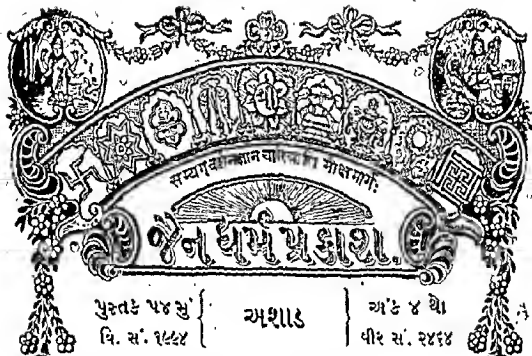 सम्यग्दर्शनज्ञानचारित्राणि मोक्षमार्गः
જૈન ધર્મ પ્રકાશ.
પુસ્તક ૫૪ મું
વિ. સં. ૧૯૯૪
અશાડ
અંક ૪ થો
વીર સં. ૨૪૬૪